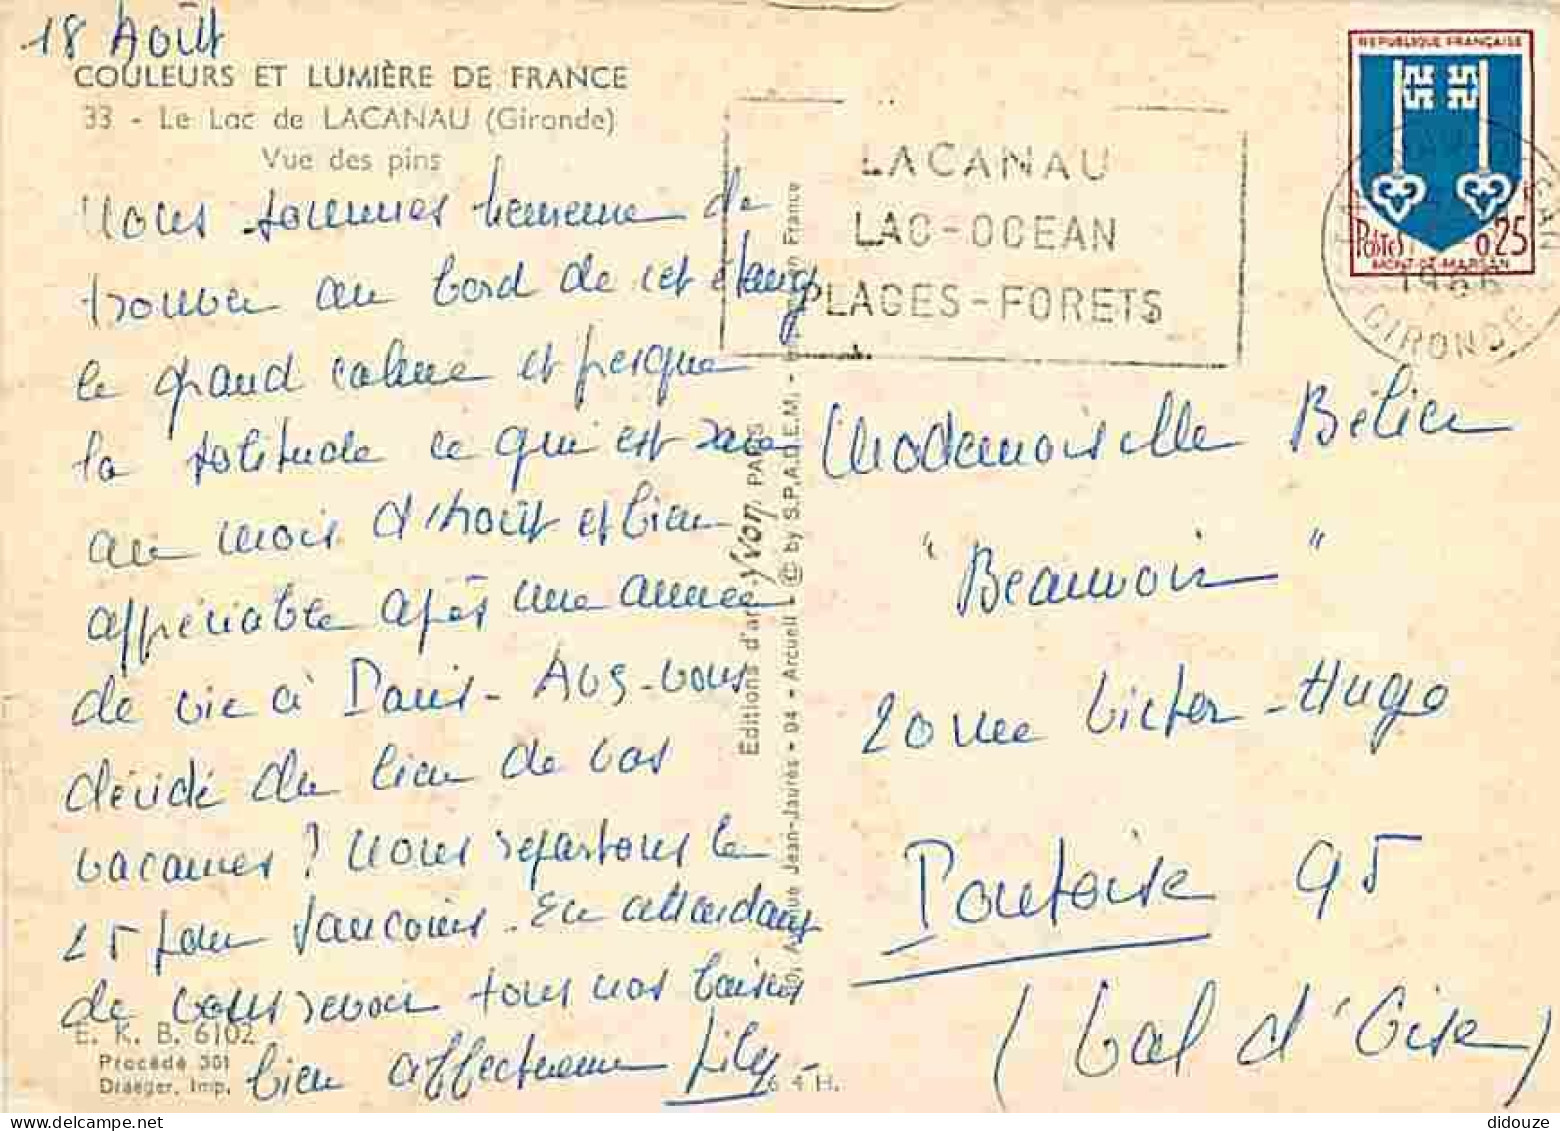 18 Août
COULEURS ET LUMIÈRE DE FRANCE
33 - Le Lac de LACANAU (Gironde)
Vue des pins
Nous sommes heureux de
trouver au bord de cet étang
le grand calme et presque
la solitude ce qui est rare
au mois d'Août et bien
appréciable après une année
de vie à Paris - Avez-vous
décidé du lieu de vos
vacances ? Nous repartons le
25 pour Vaucouleurs. En attendant
de vous revoir tous nos baisers
bien affectueux Lily
E. K. B. 6102
Procédé 301
Draeger, Imp.
6 4 H.
Editions d'art Yvon, PARIS
Jean-Jaurès - 94 - Arcueil - © by S.P.A.D.E.M. - en France
LACANAU
LAC-OCEAN
PLAGES-FORETS
REPUBLIQUE FRANÇAISE
POSTES 0,25
MONT-DE-MARSAN
GIRONDE
Mademoiselle Bélier
"Beauvoir"
20 rue Victor-Hugo
Pontoise 95
(Val d'Oise)
didouze